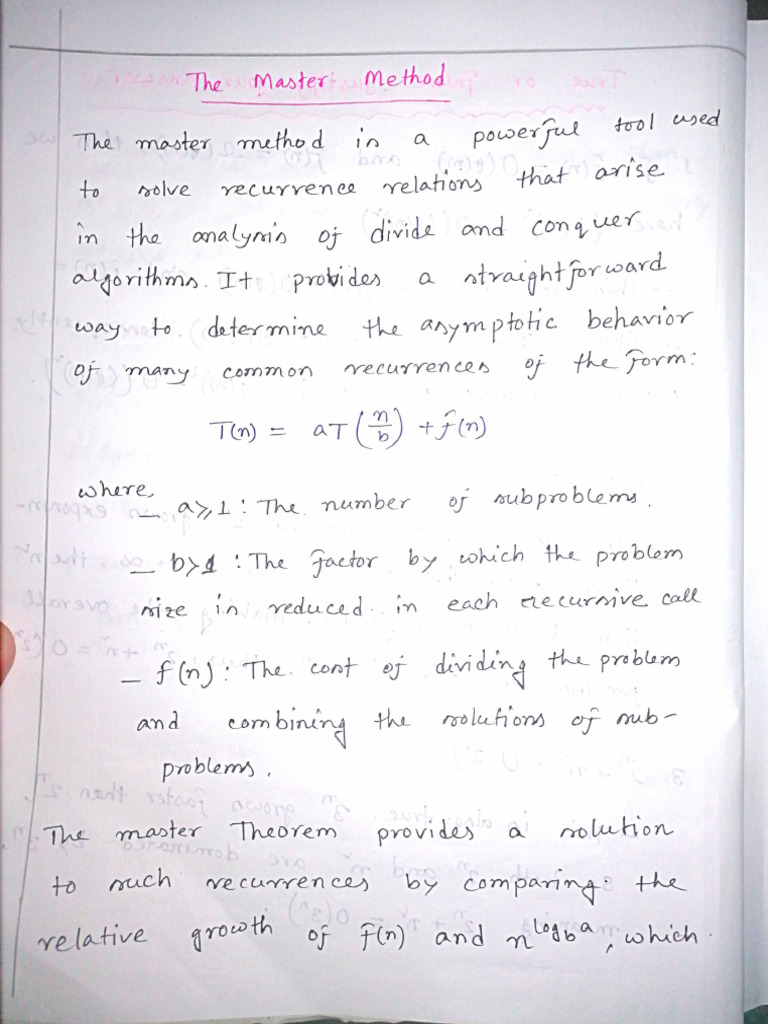 The Master Method
The master method is a powerful tool used
to solve recurrence relations that arise
in the analysis of divide and conquer
algorithms. It provides a straightforward
way to determine the asymptotic behavior
of many common recurrences of the form:
T(n) = aT(n/b) + f(n)
where,
– a⩾1 : The number of subproblems.
– b>1 : The factor by which the problem
size is reduced in each recursive call
– f(n) : The cost of dividing the problem
and combining the solutions of sub-
problems.
The master Theorem provides a solution
to such recurrences by comparing the
relative growth of f(n) and n^log_b a, which